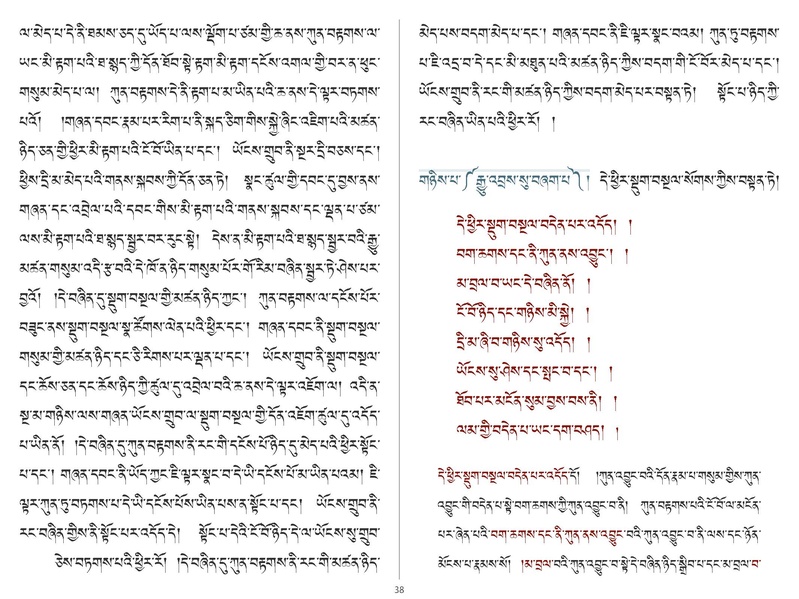 ལ་མེད་པ་དེ་ནི་ཐམས་ཅད་དུ་ཡོད་པ་ལས་ལྡོག་པ་ཙམ་གྱི་ཆ་ནས་ཀུན་བརྟགས་ལ་
ཡང་མི་རྟག་པའི་ཐ་སྙད་ཀྱི་དོན་ཐོབ་སྟེ་རྟག་མི་རྟག་དངོས་འགལ་གྱི་བར་ན་ཕུང་
གསུམ་མེད་པ་ལ། ཀུན་བརྟགས་དེ་ནི་རྟག་པ་མ་ཡིན་པའི་ཆ་ནས་དེ་ལྟར་བཏགས་
པའོ། །གཞན་དབང་རྣམ་པར་རིག་པ་ནི་སྐད་ཅིག་གིས་སྐྱེ་ཞིང་འཇིག་པའི་མཚན་
ཉིད་ཅན་གྱི་ཕྱིར་མི་རྟག་པའི་ངོ་བོ་ཡིན་པ་དང་། ཡོངས་གྲུབ་ནི་སྔར་དྲི་བཅས་དང་།
ཕྱིས་དྲི་མ་མེད་པའི་གནས་སྐབས་ཀྱི་དོན་ཅན་ཏེ། སྣང་ཚུལ་གྱི་དབང་དུ་བྱས་ནས་
གཞན་དང་འབྲེལ་པའི་དབང་གིས་མི་རྟག་པའི་གནས་སྐབས་དང་ལྡན་པ་ཙམ་
ལས་མི་རྟག་པའི་ཐ་སྙད་སྦྱར་བར་རུང་སྟེ། དེས་ན་མི་རྟག་པའི་ཐ་སྙད་སྦྱར་བའི་རྒྱུ་
མཚན་གསུམ་འདི་རྩ་བའི་དེ་ཁོ་ན་ཉིད་གསུམ་པོར་གོ་རིམ་བཞིན་སྦྱར་ཏེ་ཤེས་པར་
བྱའོ། །དེ་བཞིན་དུ་སྡུག་བསྔལ་གྱི་མཚན་ཉིད་ཀྱང་། ཀུན་བརྟགས་ལ་དངོས་པོར་
བཟུང་ནས་སྡུག་བསྔལ་སྣ་ཚོགས་ལེན་པའི་ཕྱིར་དང་། གཞན་དབང་ནི་སྡུག་བསྔལ་
གསུམ་གྱི་མཚན་ཉིད་དང་ཅི་རིགས་པར་ལྡན་པ་དང་། ཡོངས་གྲུབ་ནི་སྡུག་བསྔལ་
དང་ཆོས་ཅན་དང་ཆོས་ཉིད་ཀྱི་ཚུལ་དུ་འབྲེལ་བའི་ཆ་ནས་དེ་ལྟར་འཇོག་ལ། འདི་ན་
སྔ་མ་གཉིས་ལས་གཞན་ཡོངས་གྲུབ་ལ་སྡུག་བསྔལ་གྱི་དོན་འཇོག་ཚུལ་དུ་འདོད་
པ་ཡིན་ནོ། །དེ་བཞིན་དུ་ཀུན་བརྟགས་ནི་རང་གི་དངོས་པོ་ཉིད་དུ་མེད་པའི་ཕྱིར་སྟོང་
པ་དང་། གཞན་དབང་ནི་ཡོད་ཀྱང་ཇི་ལྟར་སྣང་བ་དེ་ཡི་དངོས་པོ་མ་ཡིན་པའམ། ཇི་
ལྟར་ཀུན་ཏུ་བཏགས་པ་དེ་ཡི་དངོས་པོས་ཡིན་པས་ན་སྟོང་པ་དང་། ཡོངས་གྲུབ་ནི་
རང་བཞིན་གྱིས་ནི་སྟོང་པར་འདོད་དེ། སྟོང་པ་དེའི་ངོ་བོ་ཉིད་དེ་ལ་ཡོངས་སུ་གྲུབ་
ཅེས་བཏགས་པའི་ཕྱིར་རོ། །དེ་བཞིན་དུ་ཀུན་བརྟགས་ནི་རང་གི་མཚན་ཉིད་
མེད་པས་བདག་མེད་པ་དང་། གཞན་དབང་ནི་ཇི་ལྟར་སྣང་བའམ། ཀུན་ཏུ་བརྟགས་
པ་ཇི་འདྲ་བ་དེ་དང་མི་མཐུན་པའི་མཚན་ཉིད་ཀྱིས་བདག་གི་ངོ་བོར་མེད་པ་དང་།
ཡོངས་གྲུབ་ནི་རང་གི་མཚན་ཉིད་ཀྱིས་བདག་མེད་པར་བསྟན་ཏེ། སྟོང་པ་ཉིད་ཀྱི་
རང་བཞིན་ཡིན་པའི་ཕྱིར་རོ། །
གཉིས་པ་༼རྒྱུ་འབྲས་སུ་བཞག་པ༽། དེ་ཕྱིར་སྡུག་བསྔལ་སོགས་ཀྱིས་བསྟན་ཏེ།
དེ་ཕྱིར་སྡུག་བསྔལ་བདེན་པར་འདོད། །
བག་ཆགས་དང་ནི་ཀུན་ནས་འབྱུང་། །
མ་བྲལ་བ་ཡང་དེ་བཞིན་ནོ། །
ངོ་བོ་ཉིད་དང་གཉིས་མི་སྐྱེ། །
དྲི་མ་ཞི་བ་གཉིས་སུ་འདོད། །
ཡོངས་སུ་ཤེས་དང་སྤང་བ་དང་། །
ཐོབ་པར་མངོན་སུམ་བྱས་བས་ནི། །
ལམ་གྱི་བདེན་པ་ཡང་དག་བཤད། །
དེ་ཕྱིར་སྡུག་བསྔལ་བདེན་པར་འདོད་དོ། །ཀུན་འབྱུང་བའི་དོན་རྣམ་པ་གསུམ་གྱིས་ཀུན་
འབྱུང་གི་བདེན་པ་སྟེ་བག་ཆགས་ཀྱི་ཀུན་འབྱུང་བ་ནི། ཀུན་བརྟགས་པའི་ངོ་བོ་ལ་མངོན་
པར་ཞེན་པའི་བག་ཆགས་དང་ནི་ཀུན་ནས་འབྱུང་བའི་ཀུན་འབྱུང་བ་ནི་ལས་དང་ཉོན་
མོངས་པ་རྣམས་སོ། །མ་བྲལ་བའི་ཀུན་འབྱུང་བ་སྟེ་དེ་བཞིན་ཉིད་སྒྲིབ་པ་དང་མ་བྲལ་བ་
38